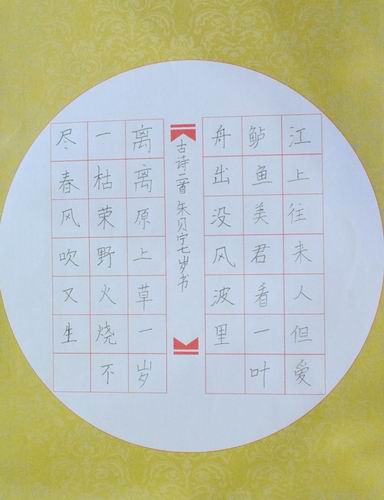 江上往来人但爱
鲈鱼美君看一叶
舟出没风波里
古诗二首 朱贝七岁书
离离原上草一岁
一枯荣野火烧不
尽春风吹又生